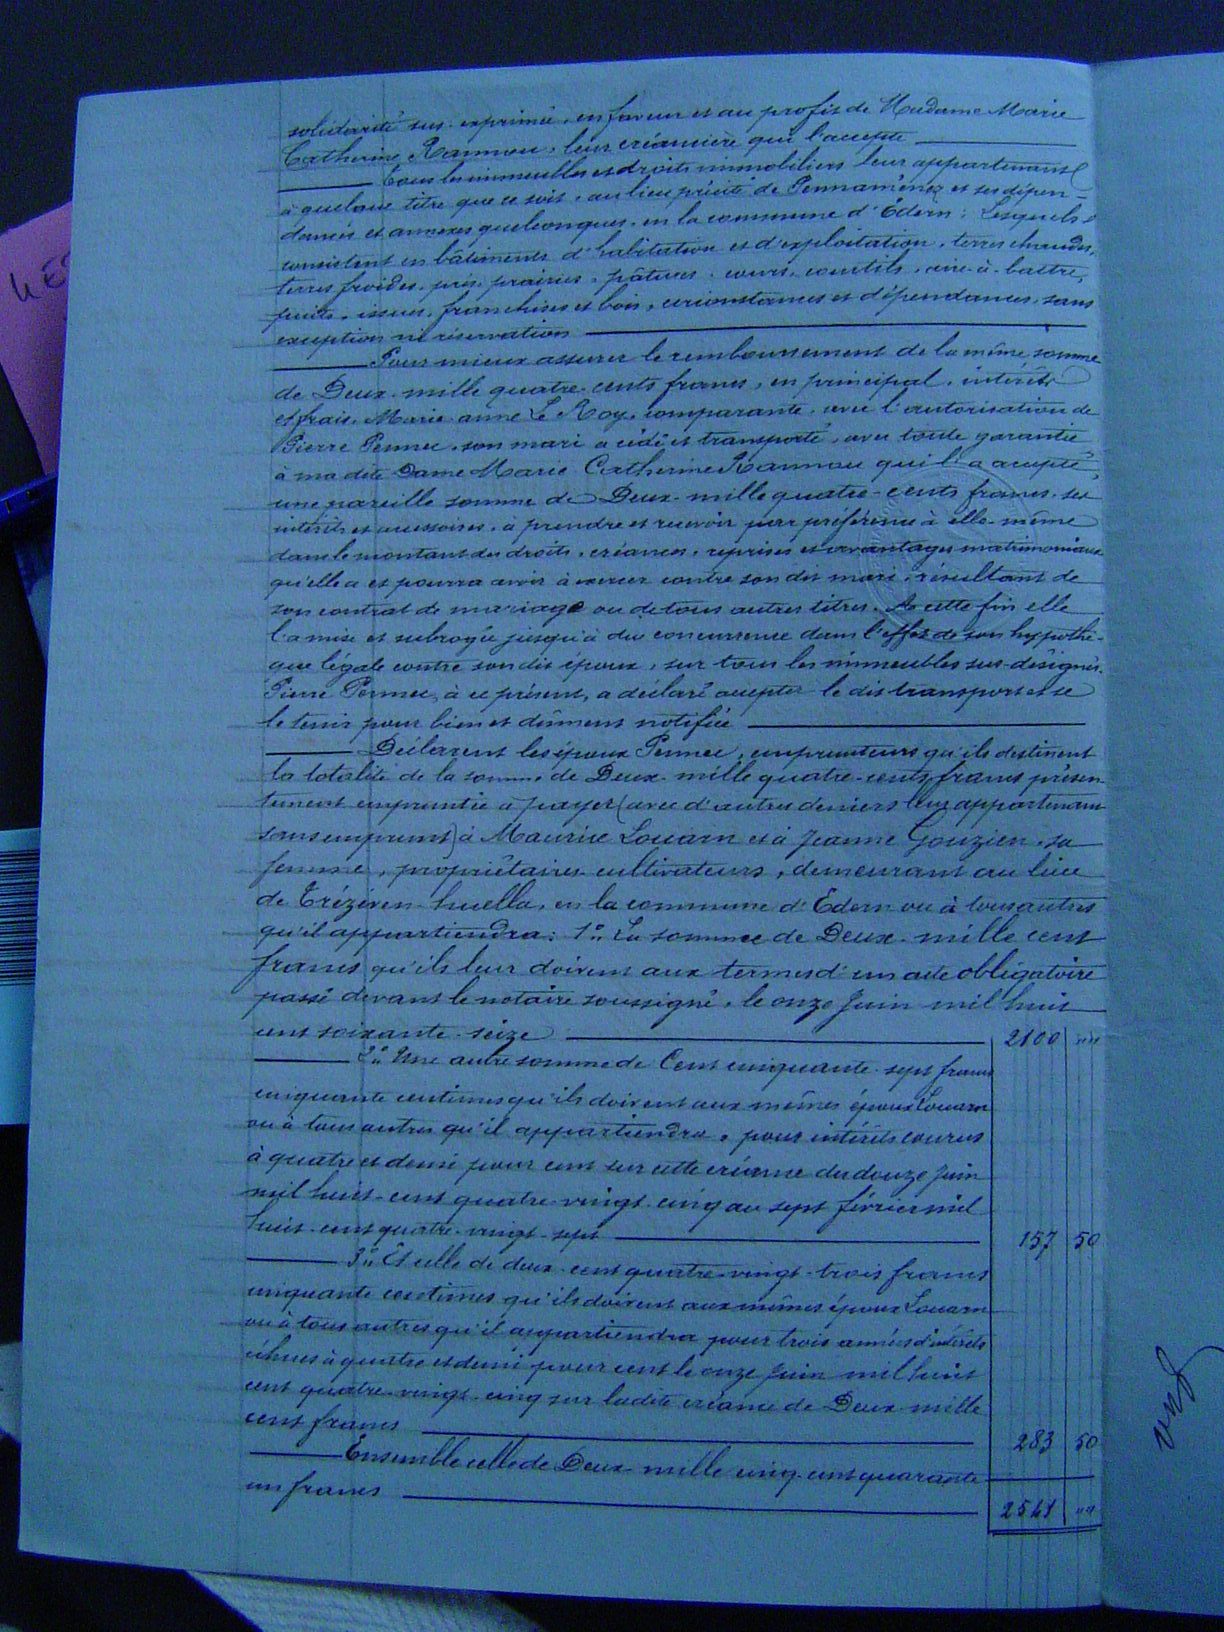 solidarité sus-exprimée, en faveur et au profit de Madame Marie
Catherine Rannou, leur créancière qui l'accepte
Tous les immeubles et droits immobiliers leur appartenant
à quelque titre que ce soit, au lieu précité de Pennaménez et ses dépen-
dances et annexes quelconques, en la commune d'Edern; Lesquels
consistent en bâtiments d'habitation et d'exploitation, terres chaudes,
terres froides, prés, prairies, pâtures, cours, courtils, aire-à-battre,
puits, issues, franchises et bois, circonstances et dépendances, sans
exception ni réservation
Pour mieux assurer le remboursement de la même somme
de Deux-mille quatre-cents francs, en principal, intérêts
et frais, Marie-anne Le Roy, comparante, avec l'autorisation de
Pierre Pennec, son mari a cédé et transporté, avec toute garantie
à ma dite Dame Marie Catherine Rannou qui l'a accepté,
une pareille somme de Deux-mille quatre-cents francs, ses
intérêts et accessoires, à prendre et recevoir par préférence à elle-même
dans le montant des droits, créances, reprises et avantages matrimoniaux
qu'elle a et pourra avoir à exercer contre son dit mari, résultant de
son contrat de mariage ou de tous autres titres. A cette fin elle
l'a mise et subrogée jusqu'à due concurrence dans l'effet de son hypothè-
que légale contre son dit époux, sur tous les immeubles sus-désignés.
Pierre Pennec, à ce présent, a déclaré accepter le dit transport et se
le tenir pour bien et dûment notifié
Déclarent les époux Pennec, emprunteurs qu'ils destinent
la totalité de la somme de Deux-mille quatre-cents francs présen
tement empruntée à payer (avec d'autres deniers leur appartenant
sans emprunt) à Maurice Louarn et à Jeanne Gouzien, sa
femme, propriétaires-cultivateurs, demeurant au lieu
de Tréziren-huella, en la commune d'Edern ou à tous autres
qu'il appartiendra: 1° La somme de Deux-mille cent
francs qu'ils leur doivent aux termes d'un acte obligatoire
passé devant le notaire soussigné, le onze Juin mil huit
cent soixante-seize 2100 """
2° Une autre somme de Cent cinquante-sept francs
cinquante centimes qu'ils doivent aux mêmes époux Louarn
ou à tous autres qu'il appartiendra, pour intérêts courus
à quatre et demi pour cent sur cette créance du douze Juin
mil huit-cent quatre-vingt-cinq au sept février mil
huit-cent quatre-vingt-sept 157 50
3° Et celle de deux-cent quatre-vingt-trois francs
cinquante centimes qu'ils doivent aux mêmes époux Louarn
ou à tous autres qu'il appartiendra pour trois années d'intérêts
échues à quatre et demi pour cent le onze Juin mil huit
cent quatre-vingt-cinq sur ladite créance de Deux-mille
cent francs 283 50
Ensemble celle de Deux-mille cinq-cent quarante
un francs 2541 ""